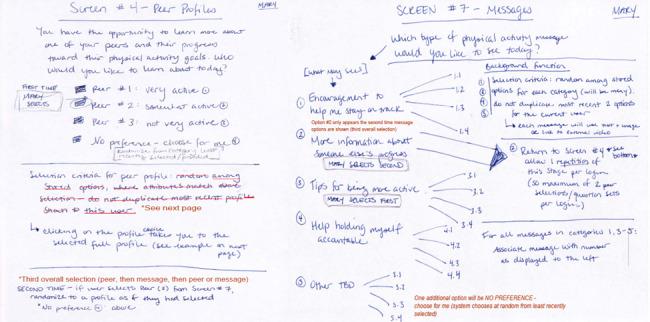 Screen # 4 - Peer Profiles
MARY
You have the opportunity to learn more about
one of your peers and their progress
toward their physical activity goals. Who
would you like to learn about today?
FIRST TIME
MARY
SELECTS
Peer # 1: very active ①
Peer # 2: somewhat active ②
Peer # 3: not very active ③
No preference - choose for me ④
Selection criteria for peer profile: random among
stored options, where attributes match above
selection - do not duplicate most recent profile
shown to this user.
*See next page
↳ clicking on the profile choice takes you to the
selected full profile (see example on next
page)
*Third overall selection (peer, then message, then peer or message)
SECOND TIME - if user selects Peer (2) from Screen # 7,
randomize to a profile as if they had selected
"No preference ④" above
SCREEN # 7 - Messages
MARY
Which type of physical activity message
would you like to see today?
[What Mary Sees]
① Encouragement to
help me stay on track
1.1
1.2
1.3
1.4
Option #2 only appears the second time message
options are shown (third overall selection)
② More information about
someone else's progress
MARY SELECTS SECOND
③ Tips for being more active
MARY SELECTS FIRST
3.1
3.2
3.3
3.4
④ Help holding myself
accountable
4.1
4.2
4.3
4.4
⑤ Other TBD
5.1
5.2
5.3
5.4
Background function
Selection criteria: random among stored
options for each category (will be many).
do not duplicate most recent 2 options
for the current user
↳ each message will use text + image
or link to external video
② Return to Screen #4
allow 1 repetition of
this stage per login
(so maximum of 2 peer
selections/question sets
per login)
*See bottom
For all messages in categories 1, 3-5:
Associate message with number
as displayed to the left
One additional option will be NO PREFERENCE -
choose for me (system chooses at random from least recently
selected)